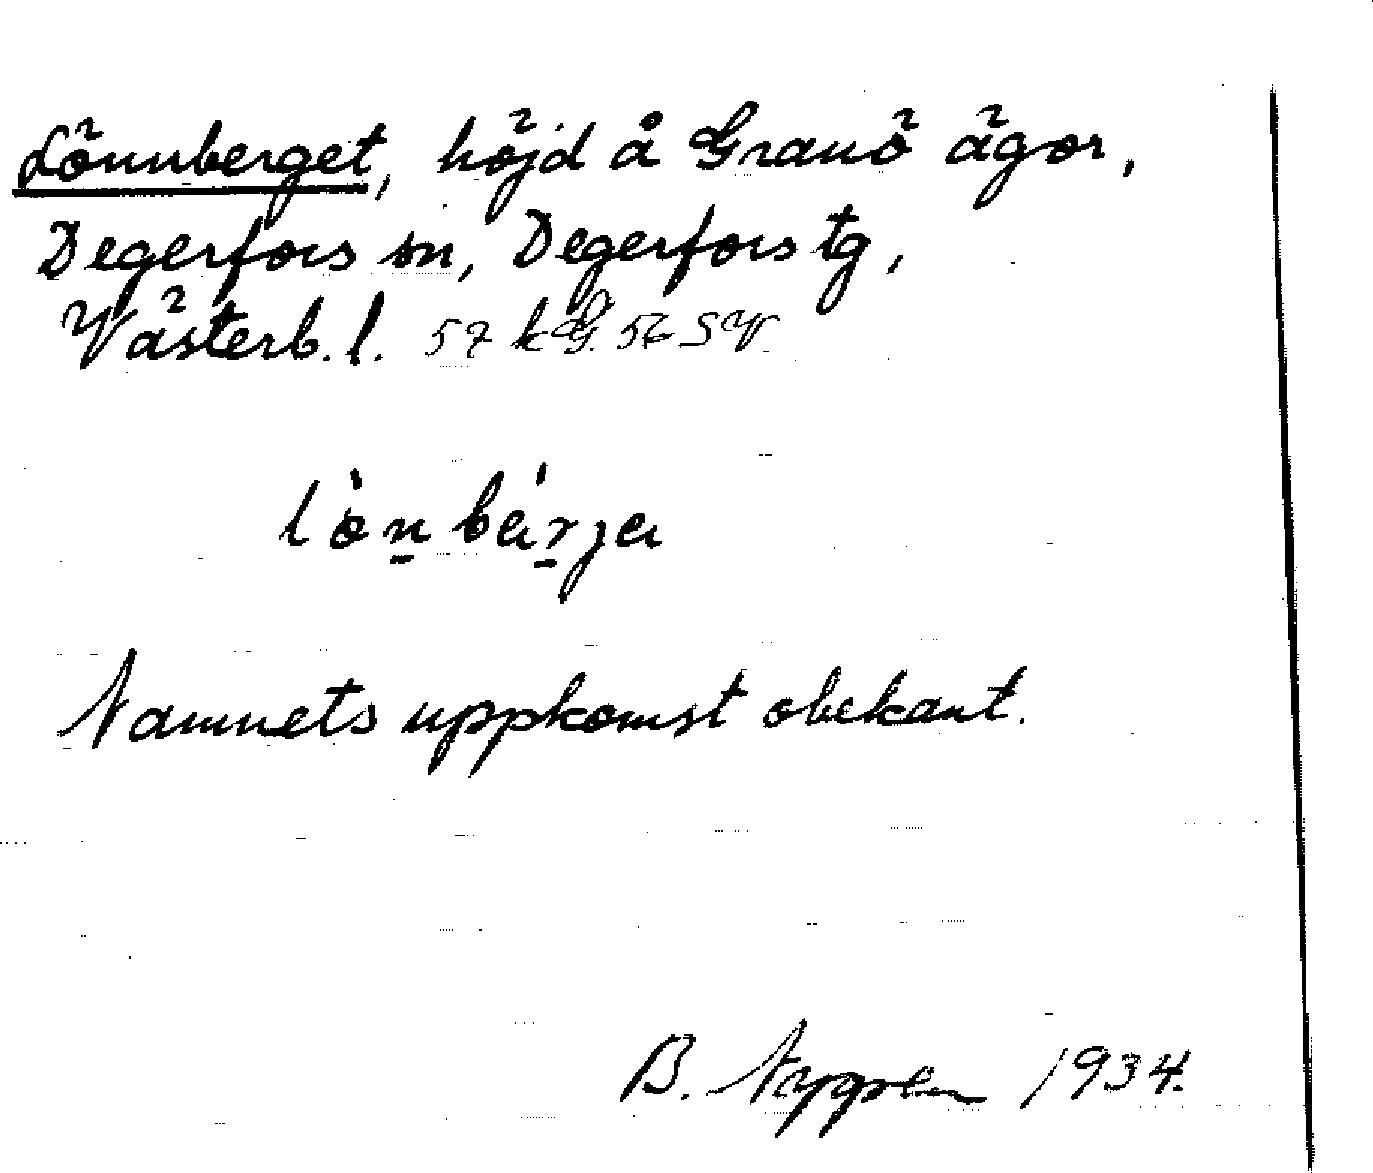 Lönnberget, höjd å Granö ägor,
Degerfors sn, Degerfors tg,
Västerb. l. 57 k G. 56 SV
lò̀n̲ bár̲ja
Namnets uppkomst obekant.
B. Nygren 1934.